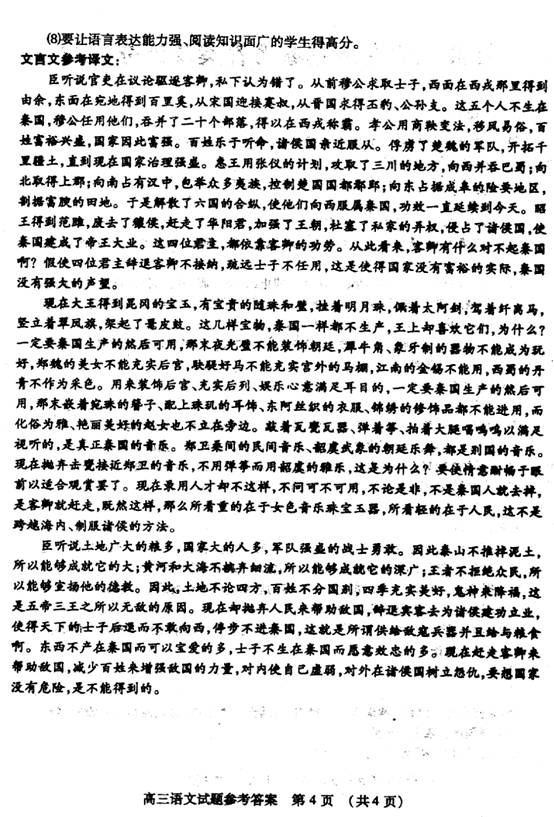 ⑻要让语言表达能力强、阅读知识面广的学生得高分。
文言文参考译文：
臣听说官吏在议论驱逐客卿，私下认为错了。从前穆公求取士子，西面在西戎那里得到
由余，东面在宛地得到百里奚，从宋国迎接蹇叔，从晋国求得丕豹、公孙支。这五个人不生在
秦国，穆公任用他们，吞并了二十个部落，得以在西戎称霸。孝公用商鞅变法，移风易俗，百
姓富裕兴盛，国家因此富强。百姓乐于听命，诸侯国亲近服从。俘虏了楚魏的军队，开拓千
里疆土，直到现在国家治理强盛。惠王用张仪的计划，攻取了三川的地方，向西并吞巴蜀；向
北取得上郡；向南占有汉中，包举众多夷族，控制楚国国都鄢郢；向东占据成皋的险要地区，
割据富腴的田地。于是解散了六国的合纵，使他们向西服属秦国，功效一直延续到今天。昭
王得到范雎，废去了穰侯，赶走了华阳君，加强了王朝，杜塞了私家的弄权，侵占了诸侯国，使
秦国建成了帝王大业。这四位君主，都依靠客卿的功劳。从此看来，客卿有什么对不起秦国
啊？假使四位君主辞退客卿不接纳，疏远士子不任用，这是使得国家没有富裕的实际，秦国
没有强大的声望。
现在大王得到昆冈的宝玉，有宝贵的随珠和璧，挂着明月珠，佩着太阿剑，驾着纤离马，
竖立着翠凤旗，架起了鼍皮鼓。这几样宝物，秦国一样都不生产，王上却喜欢它们，为什么？
一定要秦国生产的然后可用，那末夜光璧不能装饰朝廷，犀牛角、象牙制的器物不能成为玩
好，郑魏的美女不能充实后宫，駃騠好马不能充实宫外的马棚，江南的金锡不能用，西蜀的丹
青不作为采色。用来装饰后宫、充实后列、娱乐心意满足耳目的，一定要秦国生产的然后可
用，那末嵌着宛珠的簪子、配上珠玑的耳饰、东阿丝织的衣服、锦绣的修饰品都不能进用，而
化俗为雅、艳丽美好的赵女也不立在旁边。敲着瓦甕瓦器、弹着筝、拍着大腿唱呜呜以满足
视听的，是真正秦国的音乐。郑卫桑间的民间音乐、韶虞武象的朝廷乐舞，都是别国的音乐。
现在抛弃击甕接近郑卫的音乐，不用弹筝而用韶虞的雅乐，这是为什么？要使情意酣畅于眼
前以适合观赏罢了。现在录用人才却不这样，不问可不可用，不论是非，不是秦国人就去掉，
是客卿就赶走，既然这样，那么所看重的在于女色音乐珠宝玉器，所看轻的在于人民，这不是
跨越海内、制服诸侯的方法。
臣听说土地广大的粮多，国家大的人多，军队强盛的战士勇敢。因此泰山不推掉泥土，
所以能够成就它的大；黄河和大海不摈弃细流，所以能够成就它的深广；王者不拒绝众民，所
以能够宣扬他的德教。因此，土地不论四方，百姓不分国别，四季充实美好，鬼神来降福，这
是五帝三王之所以无敌的原因。现在却抛弃人民来帮助敌国，辞退宾客去为诸侯建功立业，
使得天下的士子后退而不敢向西，停步不进秦国，这就是所谓供给敌寇兵器并且给与粮食
啊。东西不产在秦国而可以宝爱的多，士子不生在秦国而愿意效忠的多。现在赶走客卿来
帮助敌国，减少百姓来增强敌国的力量，对内使自己虚弱，对外在诸侯国树立怨仇，要想国家
没有危险，是不能得到的。
高三语文试题参考答案 第4页 （共4页）